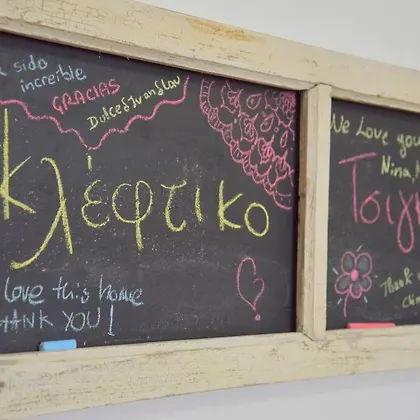 sido
increible
GRACIAS
Dulce & Juan & Lau
κλέφτικο
Love this home
THANK YOU!
We Love you
Nina,
Τσιγ
Thank